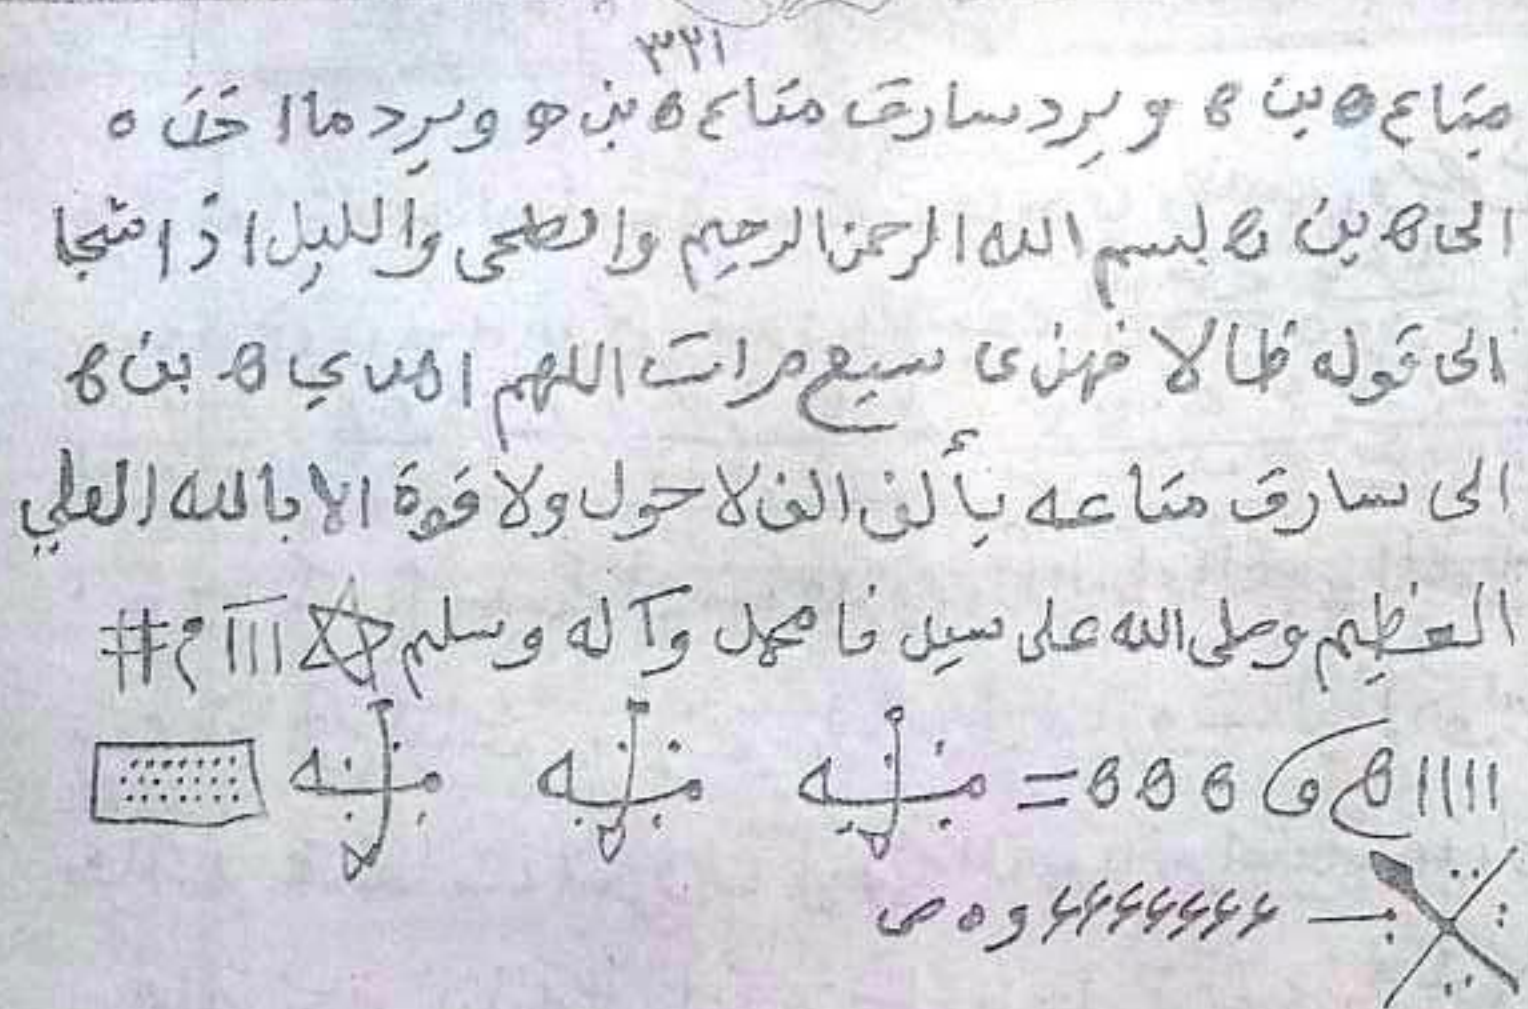 ٣٢١
متاع ه بن ه ويرد سارق متاع ه بن ه ويرد ما اخذه
الى ه بن ه بسم الله الرحمن الرحيم والضحى والليل اذا سجا
الى قوله ضالا فهدى سبع مرات اللهم اهدي ه بن ه
الى سارق متاعه بألف الف لا حول ولا قوة الا بالله العلي
العظيم وصلى الله على سيدنا محمد وآله وسلم ااا م #
اااا ه = ه ه ه